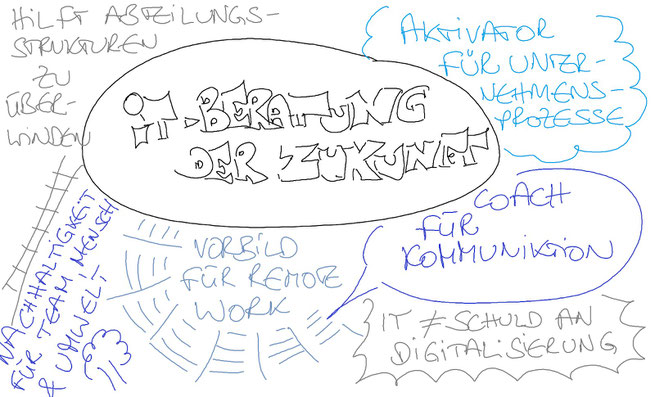 HILFT ABTEILUNGS-
STRUKTUREN
ZU
ÜBER-
WINDEN
IT-BERATUNG
DER ZUKUNFT
AKTIVATOR
FÜR UNTER-
NEHMENS-
PROZESSE
COACH
FÜR
KOMMUNIKTION
VORBILD
FÜR REMOTE
WORK
NACHHALTIGKEIT
FÜR TEAM, MENSCH
& UMWELT
IT ≠ SCHULD AN
DIGITALISIERUNG